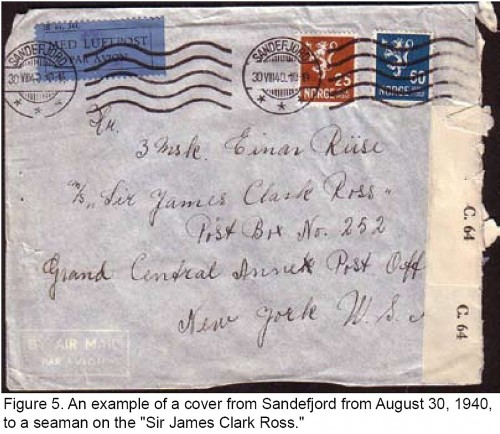 MED LUFTPOST
PAR AVION
SANDEFJORD
30 VIII 40
SANDEFJORD
30 VIII 40
25
NORGE
60
NORGE
Hr.
3 Msk. Einar Riise
m/s „Sir James Clark Ross„
Post Box No. 252
Grand Central Annex Post Off
New York U.S.
BY AIR MAIL
PAR AVION
C. 64
C. 64
Figure 5. An example of a cover from Sandefjord from August 30, 1940,
to a seaman on the "Sir James Clark Ross."